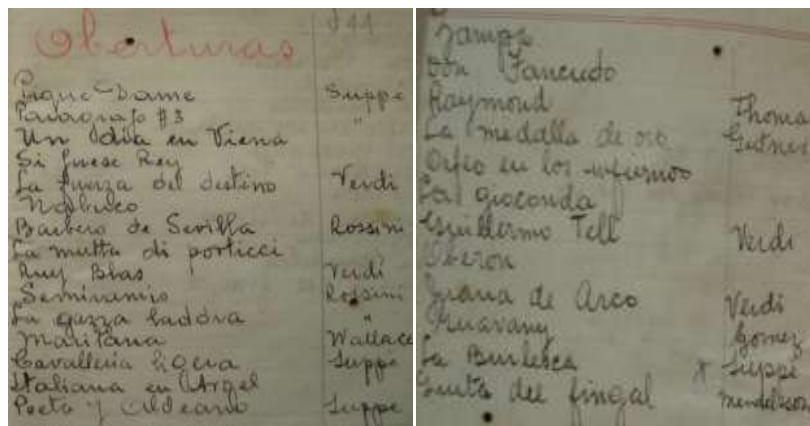 Oberturas 211
Pique-Dame Suppé
Paragrafo #3 "
Un dia en Viena
Si fuese Rey
La fuerza del destino Verdi
Nabuco
Barbero de Sevilla Rossini
La mutta di portici
Ruy Blas Verdi
Semiramis Rossini
La gazza ladóra "
Maritana Wallace
Cavalleria ligera Suppé
Italiana en Argel
Poeta y Aldeano Suppé
Zampa
Don Tancredo
Raymond Thoma
La medalla de oro
Orfeo en los infiernos
La gioconda
Guillermo Tell Verdi
Oberon
Juana de Arco Verdi
Guarany Gomez
La Burlesca x Suppé
Gruta del fingal Mendelsson